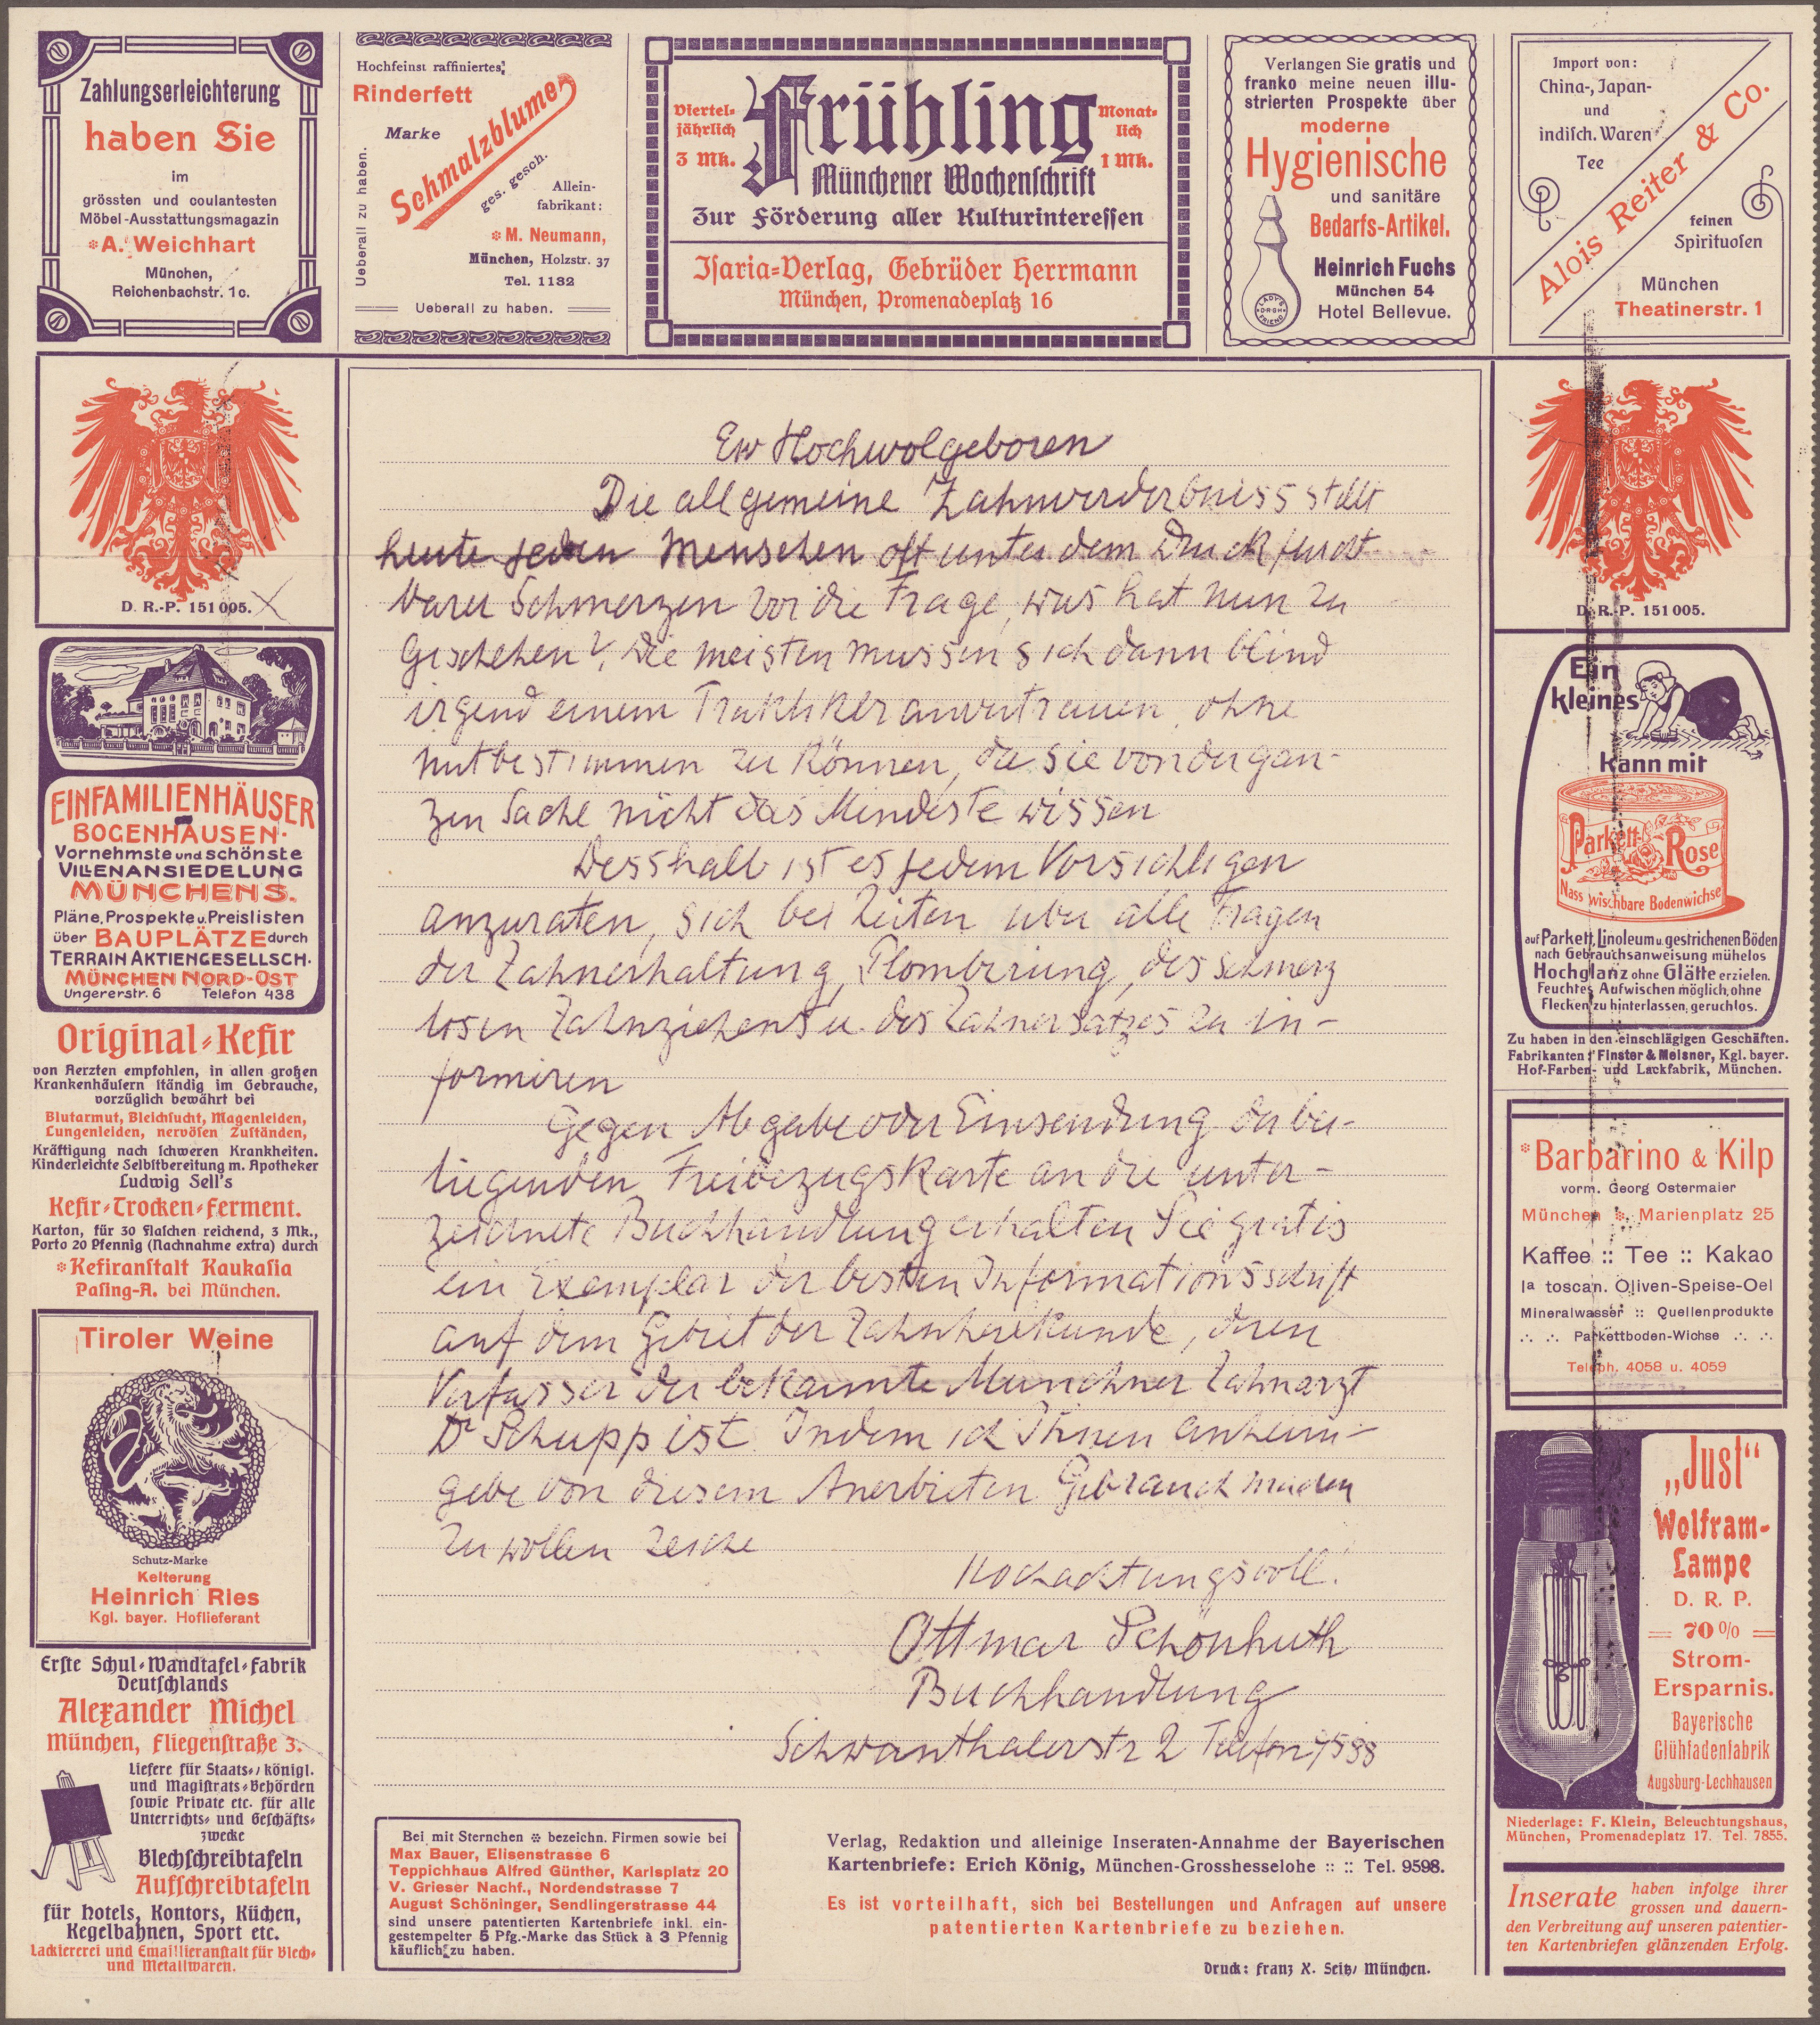 Zahlungserleichterung
haben Sie
im
grössten und coulantesten
Möbel-Ausstattungsmagazin
※A. Weichhart
München,
Reichenbachstr. 10.
Hochfeinst raffiniertes
Rinderfett
Marke
Schmalzblume
ges. gesch.
Allein-
fabrikant:
※ M. Neumann,
München, Holzstr. 37
Tel. 1132
Ueberall zu haben.
Ueberall zu haben.
Viertel-
jährlich
3 Mk.
Frühling
Monat-
lich
1 Mk.
Münchener Wochenschrift
Zur Förderung aller Kulturinteressen
Isaria-Verlag, Gebrüder Herrmann
München, Promenadeplatz 16
Verlangen Sie gratis und
franko meine neuen illu-
strierten Prospekte über
moderne
Hygienische
und sanitäre
Bedarfs-Artikel.
Heinrich Fuchs
München 54
Hotel Bellevue.
LADY'S
D.R.G.M.
FRIEND
Import von:
China-, Japan-
und
indisch. Waren
Tee
Alois Reiter & Co.
feinen
Spirituosen
München
Theatinerstr. 1
D. R.-P. 151005.
EINFAMILIENHÄUSER
BOGENHAUSEN-
Vornehmste und schönste
VILLENANSIEDELUNG
MÜNCHENS.
Pläne, Prospekte u. Preislisten
über BAUPLÄTZE durch
TERRAIN AKTIENGESELLSCH.
MÜNCHEN NORD-OST
Ungererstr. 6 Telefon 438
Original-Kefir
von Aerzten empfohlen, in allen großen
Krankenhäusern ständig im Gebrauche,
vorzüglich bewährt bei
Blutarmut, Bleichsucht, Magenleiden,
Lungenleiden, nervösen Zuständen,
Kräftigung nach schweren Krankheiten.
Kinderleichte Selbstbereitung m. Apotheker
Ludwig Sell's
Kefir-Trocken-Ferment.
Karton, für 30 Flaschen reichend, 3 Mk.,
Porto 20 Pfennig (Nachnahme extra) durch
※Kefiranstalt Kaukasia
Pasing-A. bei München.
Tiroler Weine
Schutz-Marke
Kelterung
Heinrich Ries
Kgl. bayer. Hoflieferant
Erste Schul-Wandtafel-Fabrik
Deutschlands
Alexander Michel
München, Fliegenstraße 3.
Liefere für Staats-, königl.
und Magistrats-Behörden
sowie Private etc. für alle
Unterrichts- und Geschäfts-
zwecke
Blechschreibtafeln
Aufschreibtafeln
für Hotels, Kontors, Küchen,
Kegelbahnen, Sport etc.
Lackiererei und Emaillieranstalt für Blech-
und Metallwaren.
Ew Hochwolgeboren
Die allgemeine Zahnverderbniss stellt
heute jeden Menschen oft unter dem Druck furcht-
barer Schmerzen vor die Frage, was hat nun zu
Geschehen? Die meisten mussen sich dann blind
irgend einem Praktiker anvertrauen, ohne
mitbestimmen zu können, da sie von der gan-
zen Sache nicht das Mindeste wissen
Desshalb ist es jedem Vorsichtigen
anzuraten, sich bei Zeiten uber alle Fragen
der Zahnerhaltung, Plombirung, des schmerz
losen Zahnziehens u. des Zahnersatzes zu in-
formiren
Gegen Abgabe oder Einsendung der bei-
liegenden Freibezugskarte an die unter-
zeichnete Buchhandlung erhalten Sie gratis
ein Exemplar der besten Informationsschrift
auf dem Gebiet der Zahnheilkunde, deren
Verfasser der bekannte Munchner Zahnarzt
Dr Schupp ist. Indem ich Ihnen anheim-
gebe von diesem Anerbieten Gebrauch machen
zu wollen zeiche
Hochachtungsvoll!
Ottmar Schönhuth
Buchhandlung
Schwanthalerstr 2 Telefon 7588
Bei mit Sternchen ※ bezeichn. Firmen sowie bei
Max Bauer, Elisenstrasse 6
Teppichhaus Alfred Günther, Karlsplatz 20
V. Grieser Nachf., Nordendstrasse 7
August Schöninger, Sendlingerstrasse 44
sind unsere patentierten Kartenbriefe inkl. ein-
gestempelter 5 Pfg.-Marke das Stück à 3 Pfennig
käuflich zu haben.
Verlag, Redaktion und alleinige Inseraten-Annahme der Bayerischen
Kartenbriefe: Erich König, München-Grosshesselohe :: :: Tel. 9598.
Es ist vorteilhaft, sich bei Bestellungen und Anfragen auf unsere
patentierten Kartenbriefe zu beziehen.
Druck: Franz X. Seitz, München.
D. R.-P. 151005.
Ein
kleines
kann mit
Parkett-Rose
Nass wischbare Bodenwichse
auf Parkett, Linoleum u. gestrichenen Böden
nach Gebrauchsanweisung mühelos
Hochglanz ohne Glätte erzielen.
Feuchtes Aufwischen möglich, ohne
Flecken zu hinterlassen, geruchlos.
Zu haben in den einschlägigen Geschäften.
Fabrikanten: Finster & Meisner, Kgl. bayer.
Hof-Farben- und Lackfabrik, München.
※Barbarino & Kilp
vorm. Georg Ostermaier
München ※ Marienplatz 25
Kaffee :: Tee :: Kakao
Ia toscan. Oliven-Speise-Oel
Mineralwasser :: Quellenprodukte
Parkettboden-Wichse
Teleph. 4058 u. 4059
„Just“
Wolfram-
Lampe
D. R. P.
70%
Strom-
Ersparnis.
Bayerische
Glühfadenfabrik
Augsburg-Lechhausen
Niederlage: F. Klein, Beleuchtungshaus,
München, Promenadeplatz 17. Tel. 7855.
Inserate haben infolge ihrer
grossen und dauern-
den Verbreitung auf unseren patentier-
ten Kartenbriefen glänzenden Erfolg.